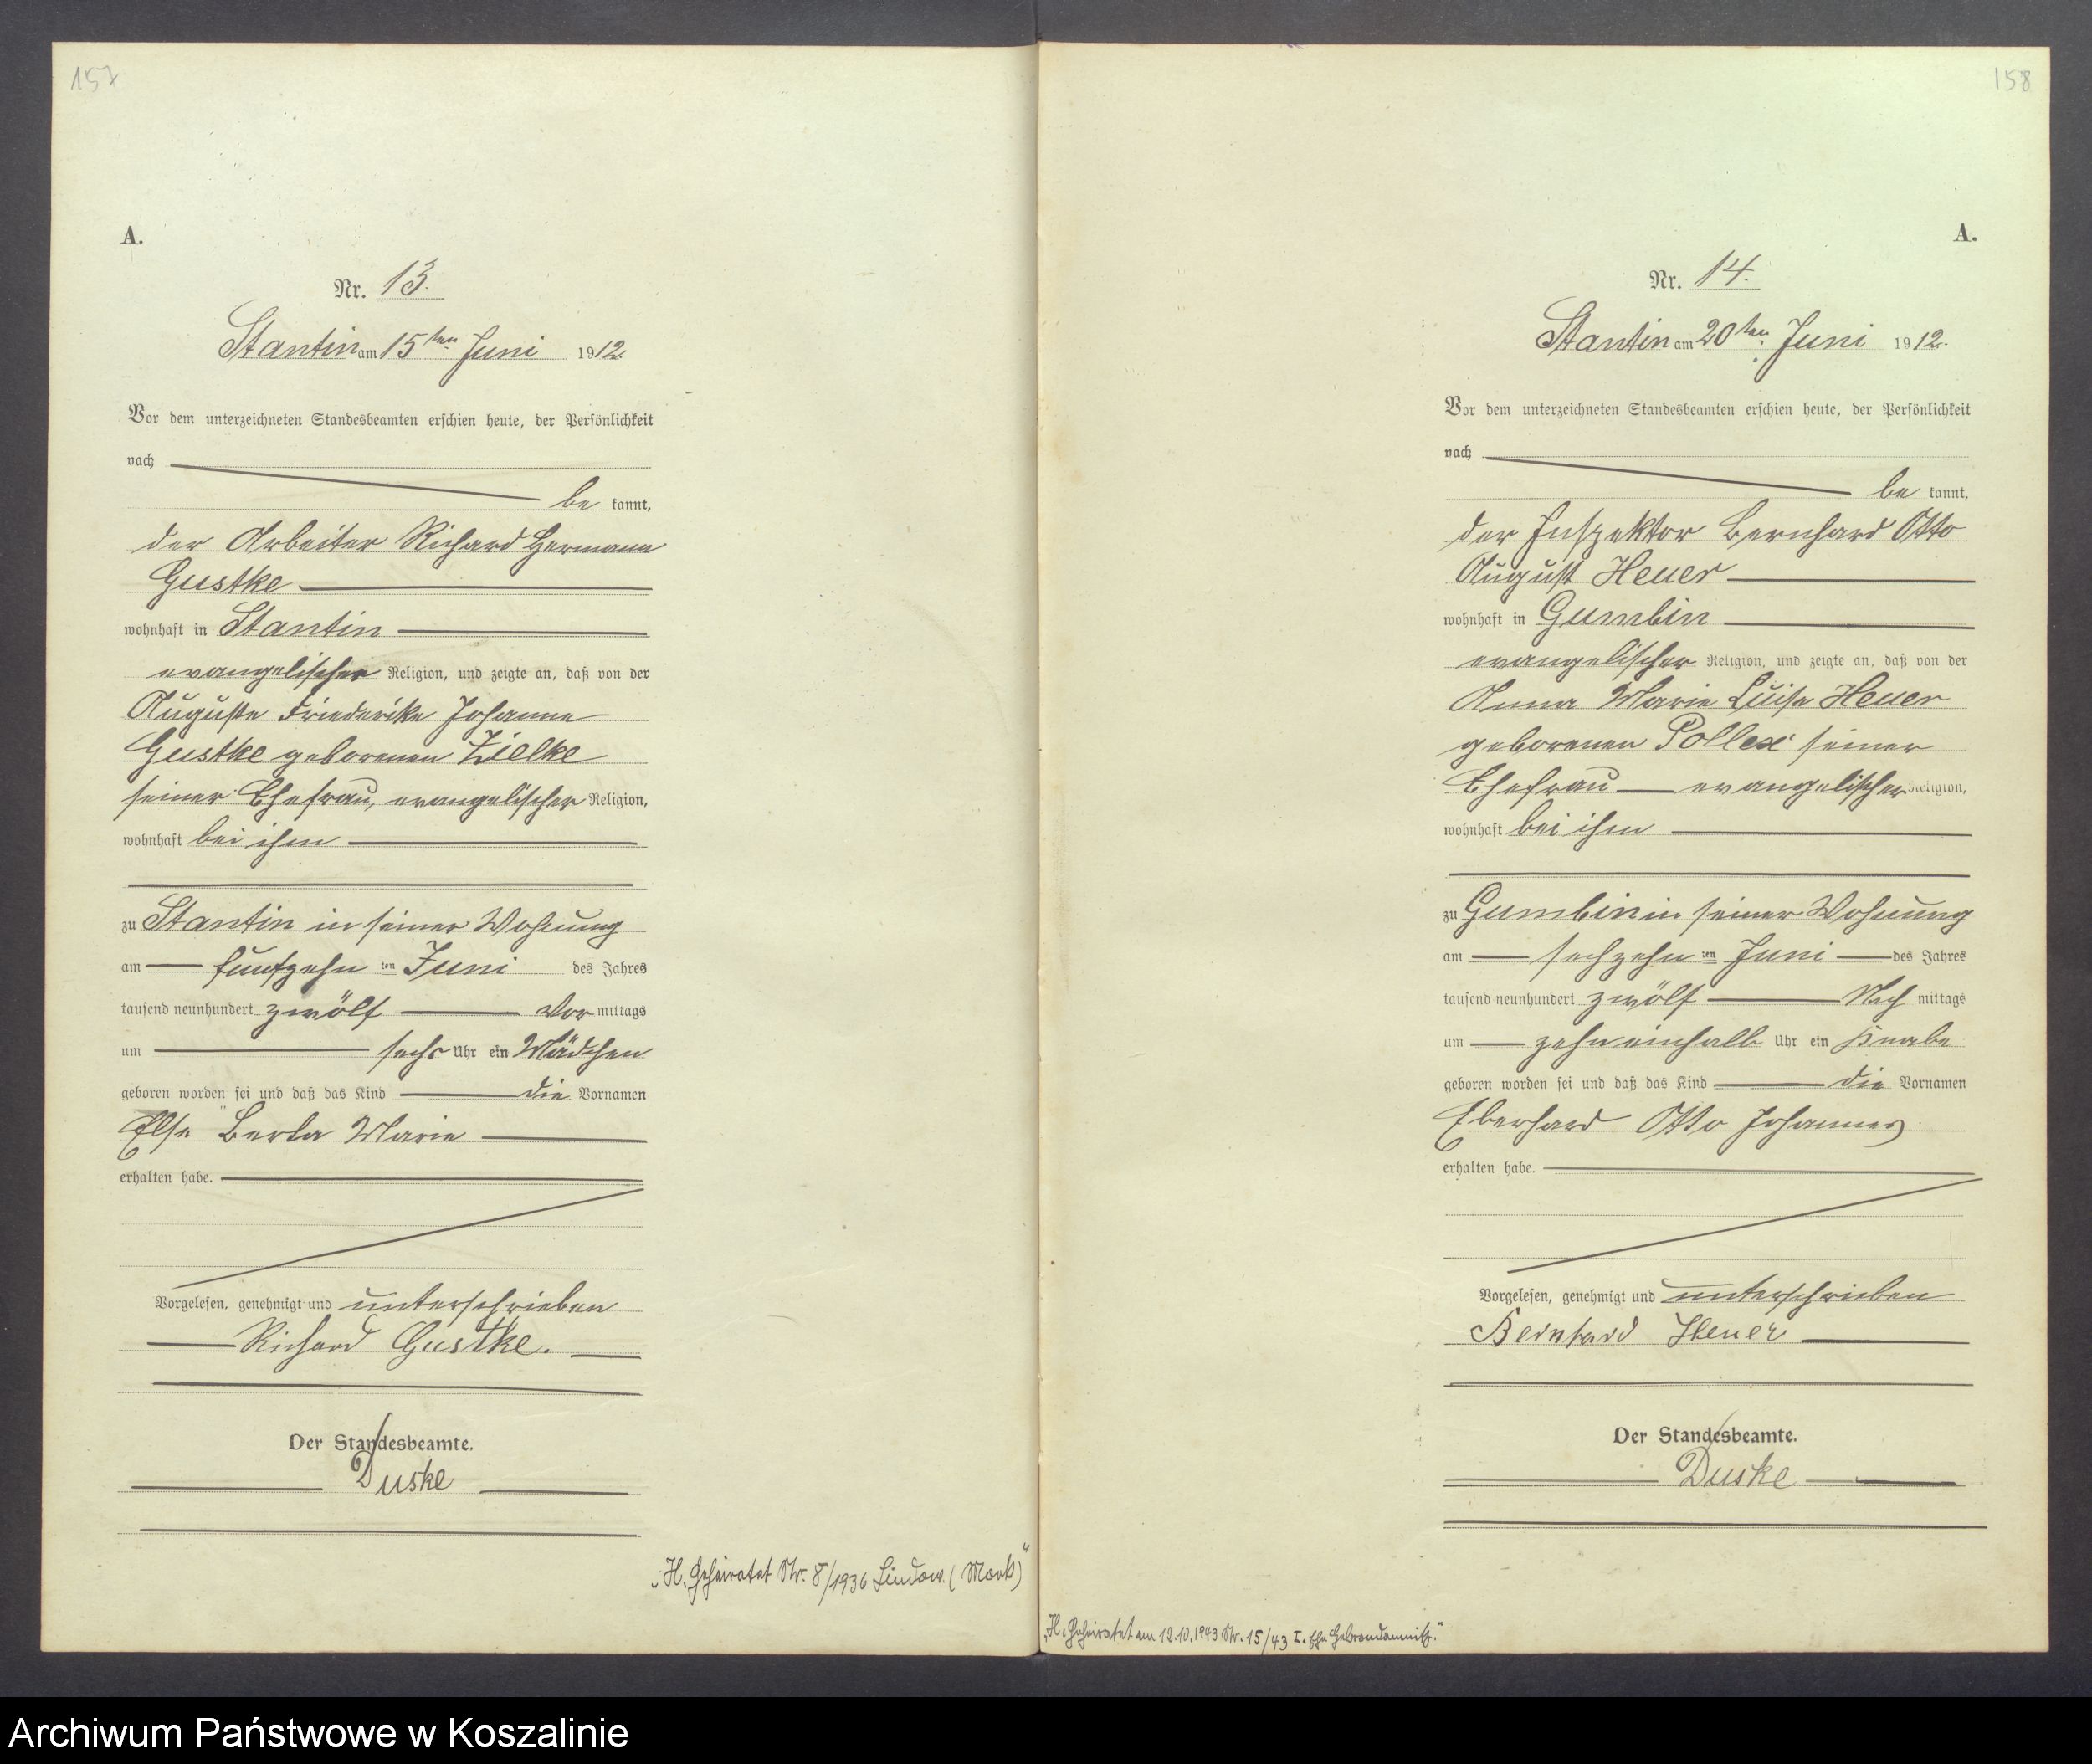 157
A.
Nr. 13.
Stantin am 15ten Juni 1912.
Vor dem unterzeichneten Standesbeamten erschien heute, der Persönlichkeit
nach
be kannt,
der Arbeiter Richard Hermann
Gustke
wohnhaft in Stantin
evangelischer Religion, und zeigte an, daß von der
Auguste Friederike Johanne
Gustke geborenen Zielke
seiner Ehefrau, evangelischer Religion,
wohnhaft bei ihm
zu Stantin in seiner Wohnung
am fünfzehn ten Juni des Jahres
tausend neunhundert zwölf Vor mittags
um sechs Uhr ein Mädchen
geboren worden sei und daß das Kind die Vornamen
Else Berta Marie
erhalten habe.
Vorgelesen, genehmigt und unterschrieben
Richard Gustke.
Der Standesbeamte.
Duske
„H. Geheiratet Nr. 8/1936 Lindow. (Mark)“
158
A.
Nr. 14.
Stantin am 20ten Juni 1912.
Vor dem unterzeichneten Standesbeamten erschien heute, der Persönlichkeit
nach
be kannt,
der Inspektor Bernhard Otto
August Heuer
wohnhaft in Gumbin
evangelischer Religion, und zeigte an, daß von der
Anna Marie Luise Heuer
geborenen Pollex seiner
Ehefrau evangelischer Religion,
wohnhaft bei ihm
zu Gumbin in seiner Wohnung
am sechzehn ten Juni des Jahres
tausend neunhundert zwölf Nach mittags
um zehneinhalb Uhr ein Knabe
geboren worden sei und daß das Kind die Vornamen
Eberhard Otto Johannes
erhalten habe.
Vorgelesen, genehmigt und unterschrieben
Bernhard Heuer
Der Standesbeamte.
Duske
„H. Geheiratet am 12.10.1943 Nr. 15/43 I. Ehe Hebrondamnitz.“
Archiwum Państwowe w Koszalinie